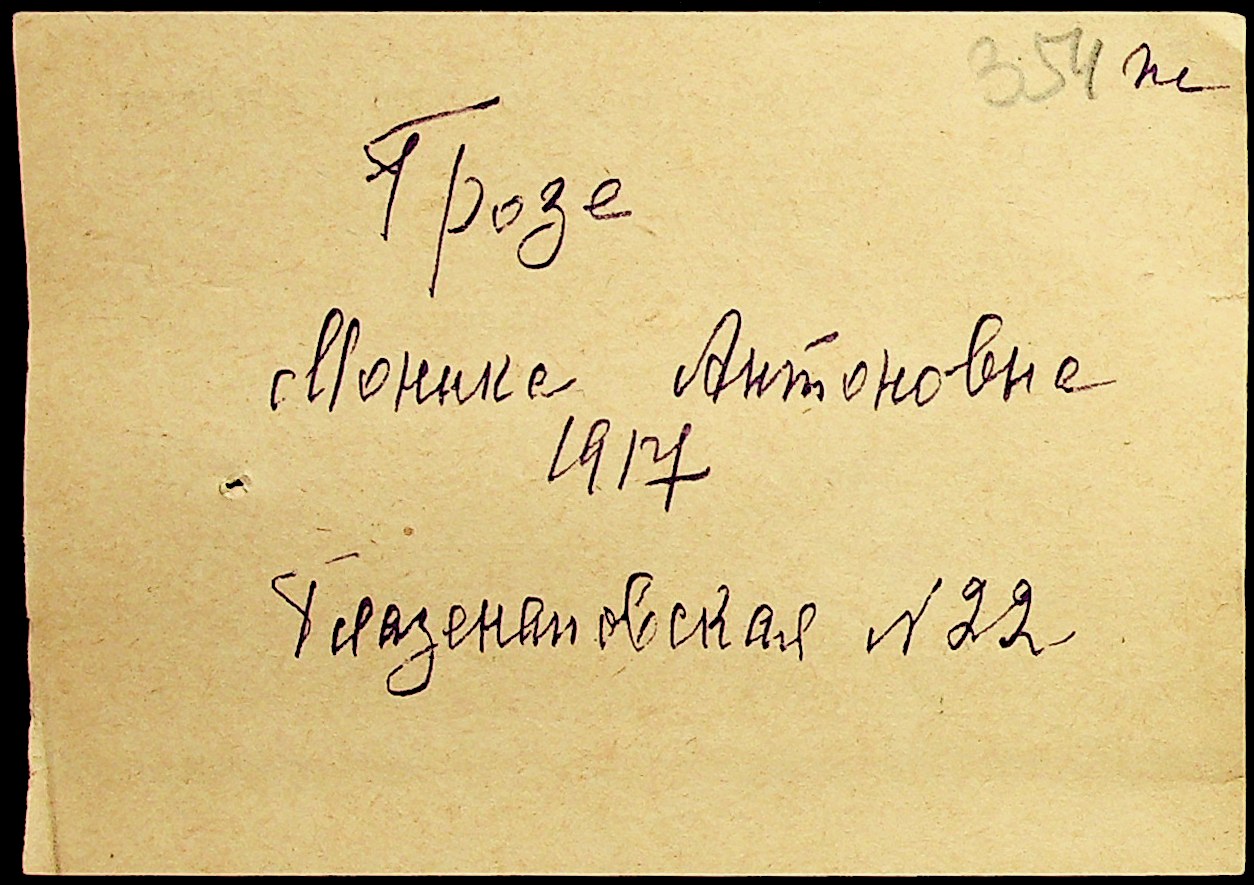 354 пе
Грозе
Моника Антоновна
1917
Глазенаповская № 22